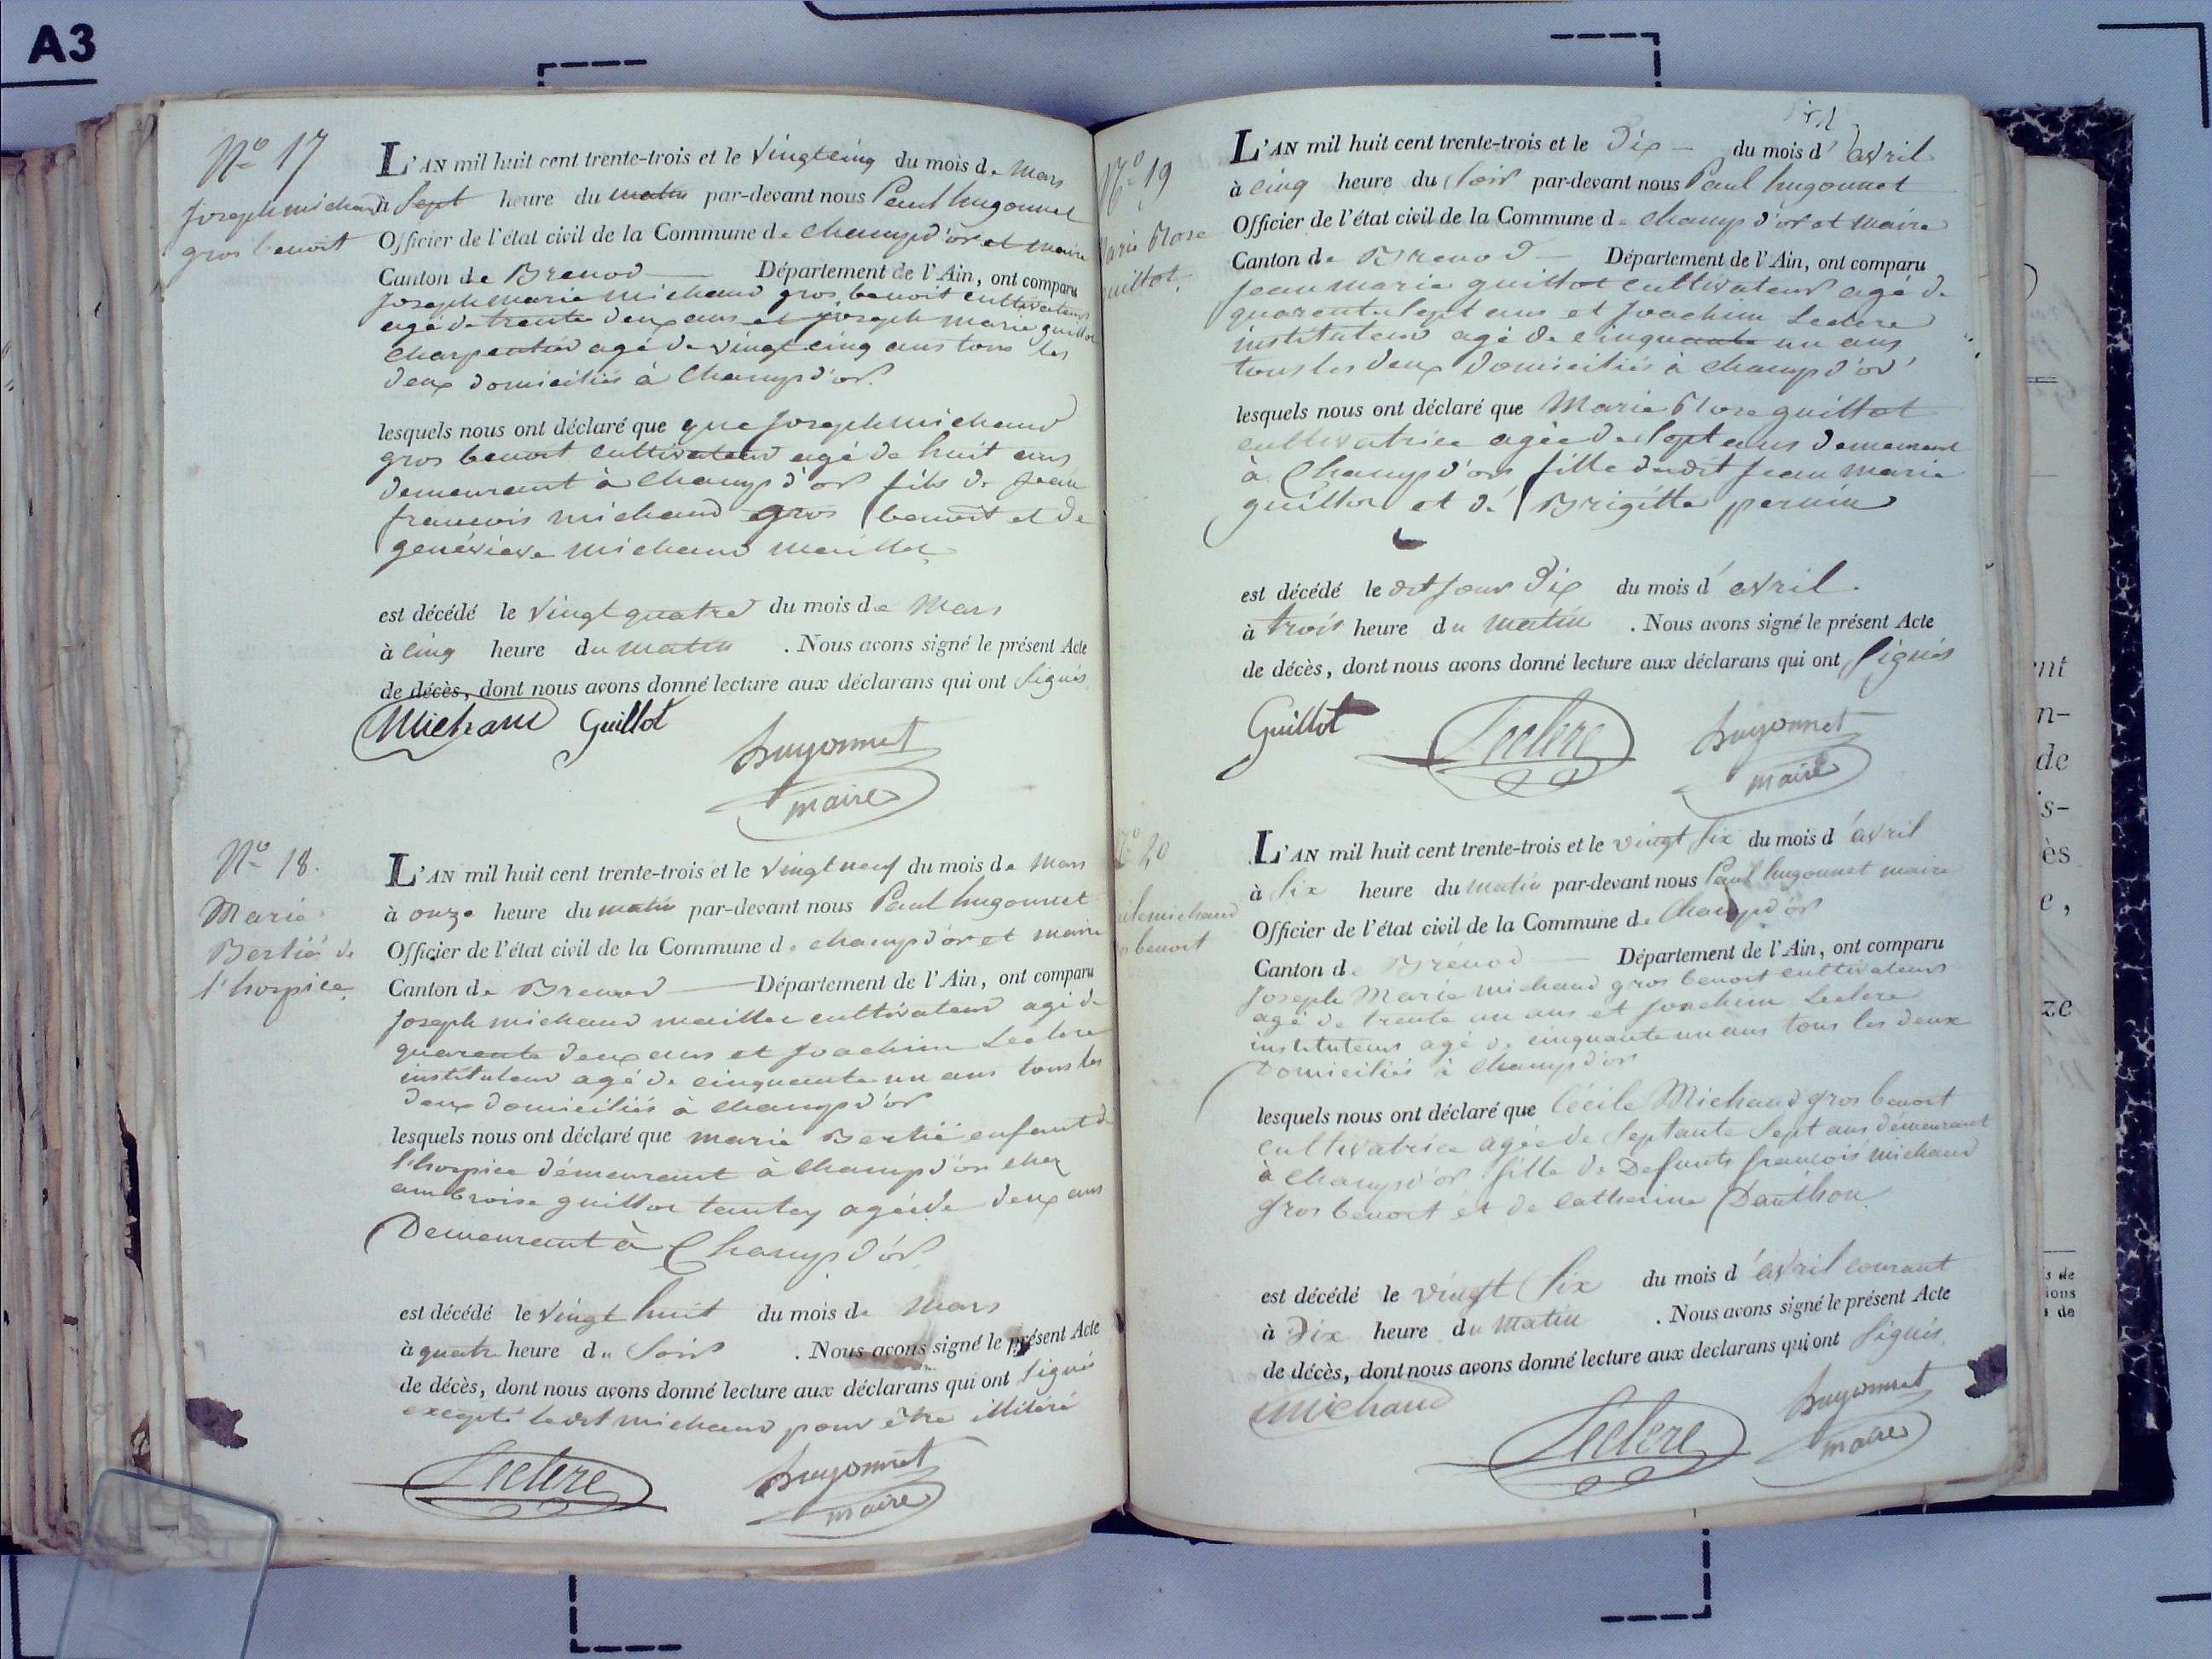 A3
N° 17
Joseph michaud
gros benoit
L'AN mil huit cent trente-trois et le vingt cinq du mois de Mars
à Sept heure du matin par-devant nous Paul hugonnet
Officier de l'état civil de la Commune de Champd'or et maire
Canton de Brenod Département de l'Ain, ont comparu
Joseph marie michaud gros benoit cultivateur
agé de trente deux ans et joseph marie guillot
charpentier agé de vingt cinq ans tous les
deux domiciliés à Champd'or.
lesquels nous ont déclaré que que Joseph michaud
gros benoit cultivateur agé de huit ans
demeurant à Champd'or fils de Jean
francois michaud gros benoit et de
genévieve michaud maillet
est décédé le vingt quatre du mois de Mars
à cinq heure du matin . Nous avons signé le présent Acte
de décès, dont nous avons donné lecture aux déclarans qui ont Signés
Michaud Guillot
hugonnet
maire
N° 18.
Marie
Bertié de
l'hospice
L'AN mil huit cent trente-trois et le vingt neuf du mois de Mars
à onze heure du matin par-devant nous Paul hugonnet
Officier de l'état civil de la Commune de champd'or et maire
Canton de Brenod Département de l'Ain, ont comparu
Joseph michaud maillet cultivateur agé de
quarante deux ans et Joachim Leclere
instituteur agé de cinquante un ans tous les
deux domiciliés à Champd'or
lesquels nous ont déclaré que marie Bertié enfant de
l'hospice démeurant à Champd'or chez
ambroise guillot tantey agée de deux ans
Demeurant à Champd'or
est décédé le vingt huit du mois de Mars
à quatre heure du Soir . Nous avons signé le présent Acte
de décès, dont nous avons donné lecture aux déclarans qui ont Signés
excepté ledit michaud pour être illitéré
Leclere hugonnet
maire
N° 19
Marie Flore
guillot
L'AN mil huit cent trente-trois et le Dix du mois d'avril
à cinq heure du Soir par-devant nous Paul hugonnet
Officier de l'état civil de la Commune de Champ d'or et Maire
Canton de Brenod Département de l'Ain, ont comparu
Jean marie guillot cultivateur agé de
quarente Sept ans et Joachim Leclere
instituteur agé de cinquante un ans
tous les deux Domiciliés à champd'or
lesquels nous ont déclaré que Marie Flore guillot
cultivatrice agée de Sept ans demeurant
à Champd'or fille dudit Jean marie
guillot et de Brigitte pernin
est décédé le dit Jour Dix du mois d'avril.
à trois heure du matin . Nous avons signé le présent Acte
de décès, dont nous avons donné lecture aux déclarans qui ont Signés
Guillot Leclere hugonnet
maire
N° 20
michaud
benoit
L'AN mil huit cent trente-trois et le vingt Six du mois d'avril
à Six heure du matin par-devant nous Paul hugonnet maire
Officier de l'état civil de la Commune de Champd'or
Canton de Brénod Département de l'Ain, ont comparu
Joseph Marie michaud gros benoit cultivateur
agé de trente un ans et Joachim Leclere
instituteur agé de cinquante un ans tous les deux
Domiciliés à Champd'or
lesquels nous ont déclaré que Cécile Michaud gros benoit
cultivatrice agée de Septante Sept ans démeurant
à Champd'or fille de Defunts françois michaud
gros benoit et de Catherine Danthon
est décédé le vingt Six du mois d'avril courant
à Dix heure du matin . Nous avons signé le présent Acte
de décès, dont nous avons donné lecture aux declarans qui ont Signés
michaud Leclere hugonnet
maire